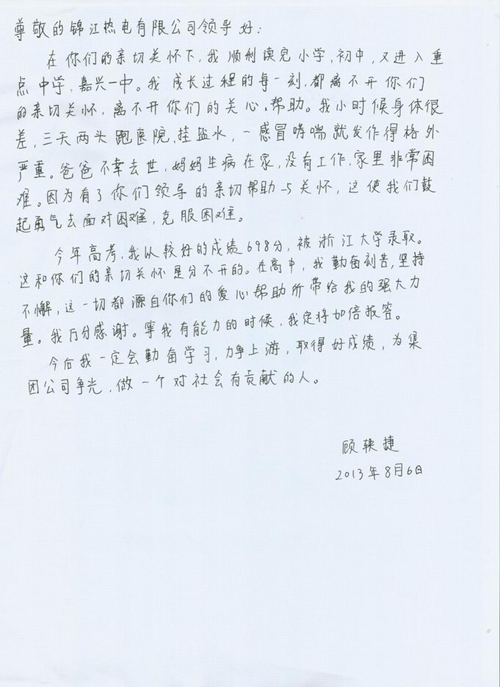 尊敬的锦江热电有限公司领导好：
在你们的亲切关怀下，我顺利读完小学，初中，又进入重
点中学，嘉兴一中。我成长过程的每一刻，都离不开你们
的亲切关怀，离不开你们的关心，帮助。我小时候身体很
差，三天两头跑医院，挂盐水，一感冒哮喘就发作得格外
严重。爸爸不幸去世，妈妈生病在家，没有工作，家里非常困
难。因为有了你们领导的亲切帮助与关怀，这使我们鼓
起勇气去面对困难，克服困难。
今年高考，我以较好的成绩698分，被浙江大学录取。
这和你们的亲切关怀是分不开的。在高中，我勤奋刻苦，坚持
不懈，这一切都源自你们的爱心帮助所带给我的强大力
量。我万分感谢。等我有能力的时候，我定将加倍报答。
今后我一定会勤奋学习，力争上游，取得好成绩，为集
团公司争光，做一个对社会有贡献的人。
顾 捷
2013年8月6日